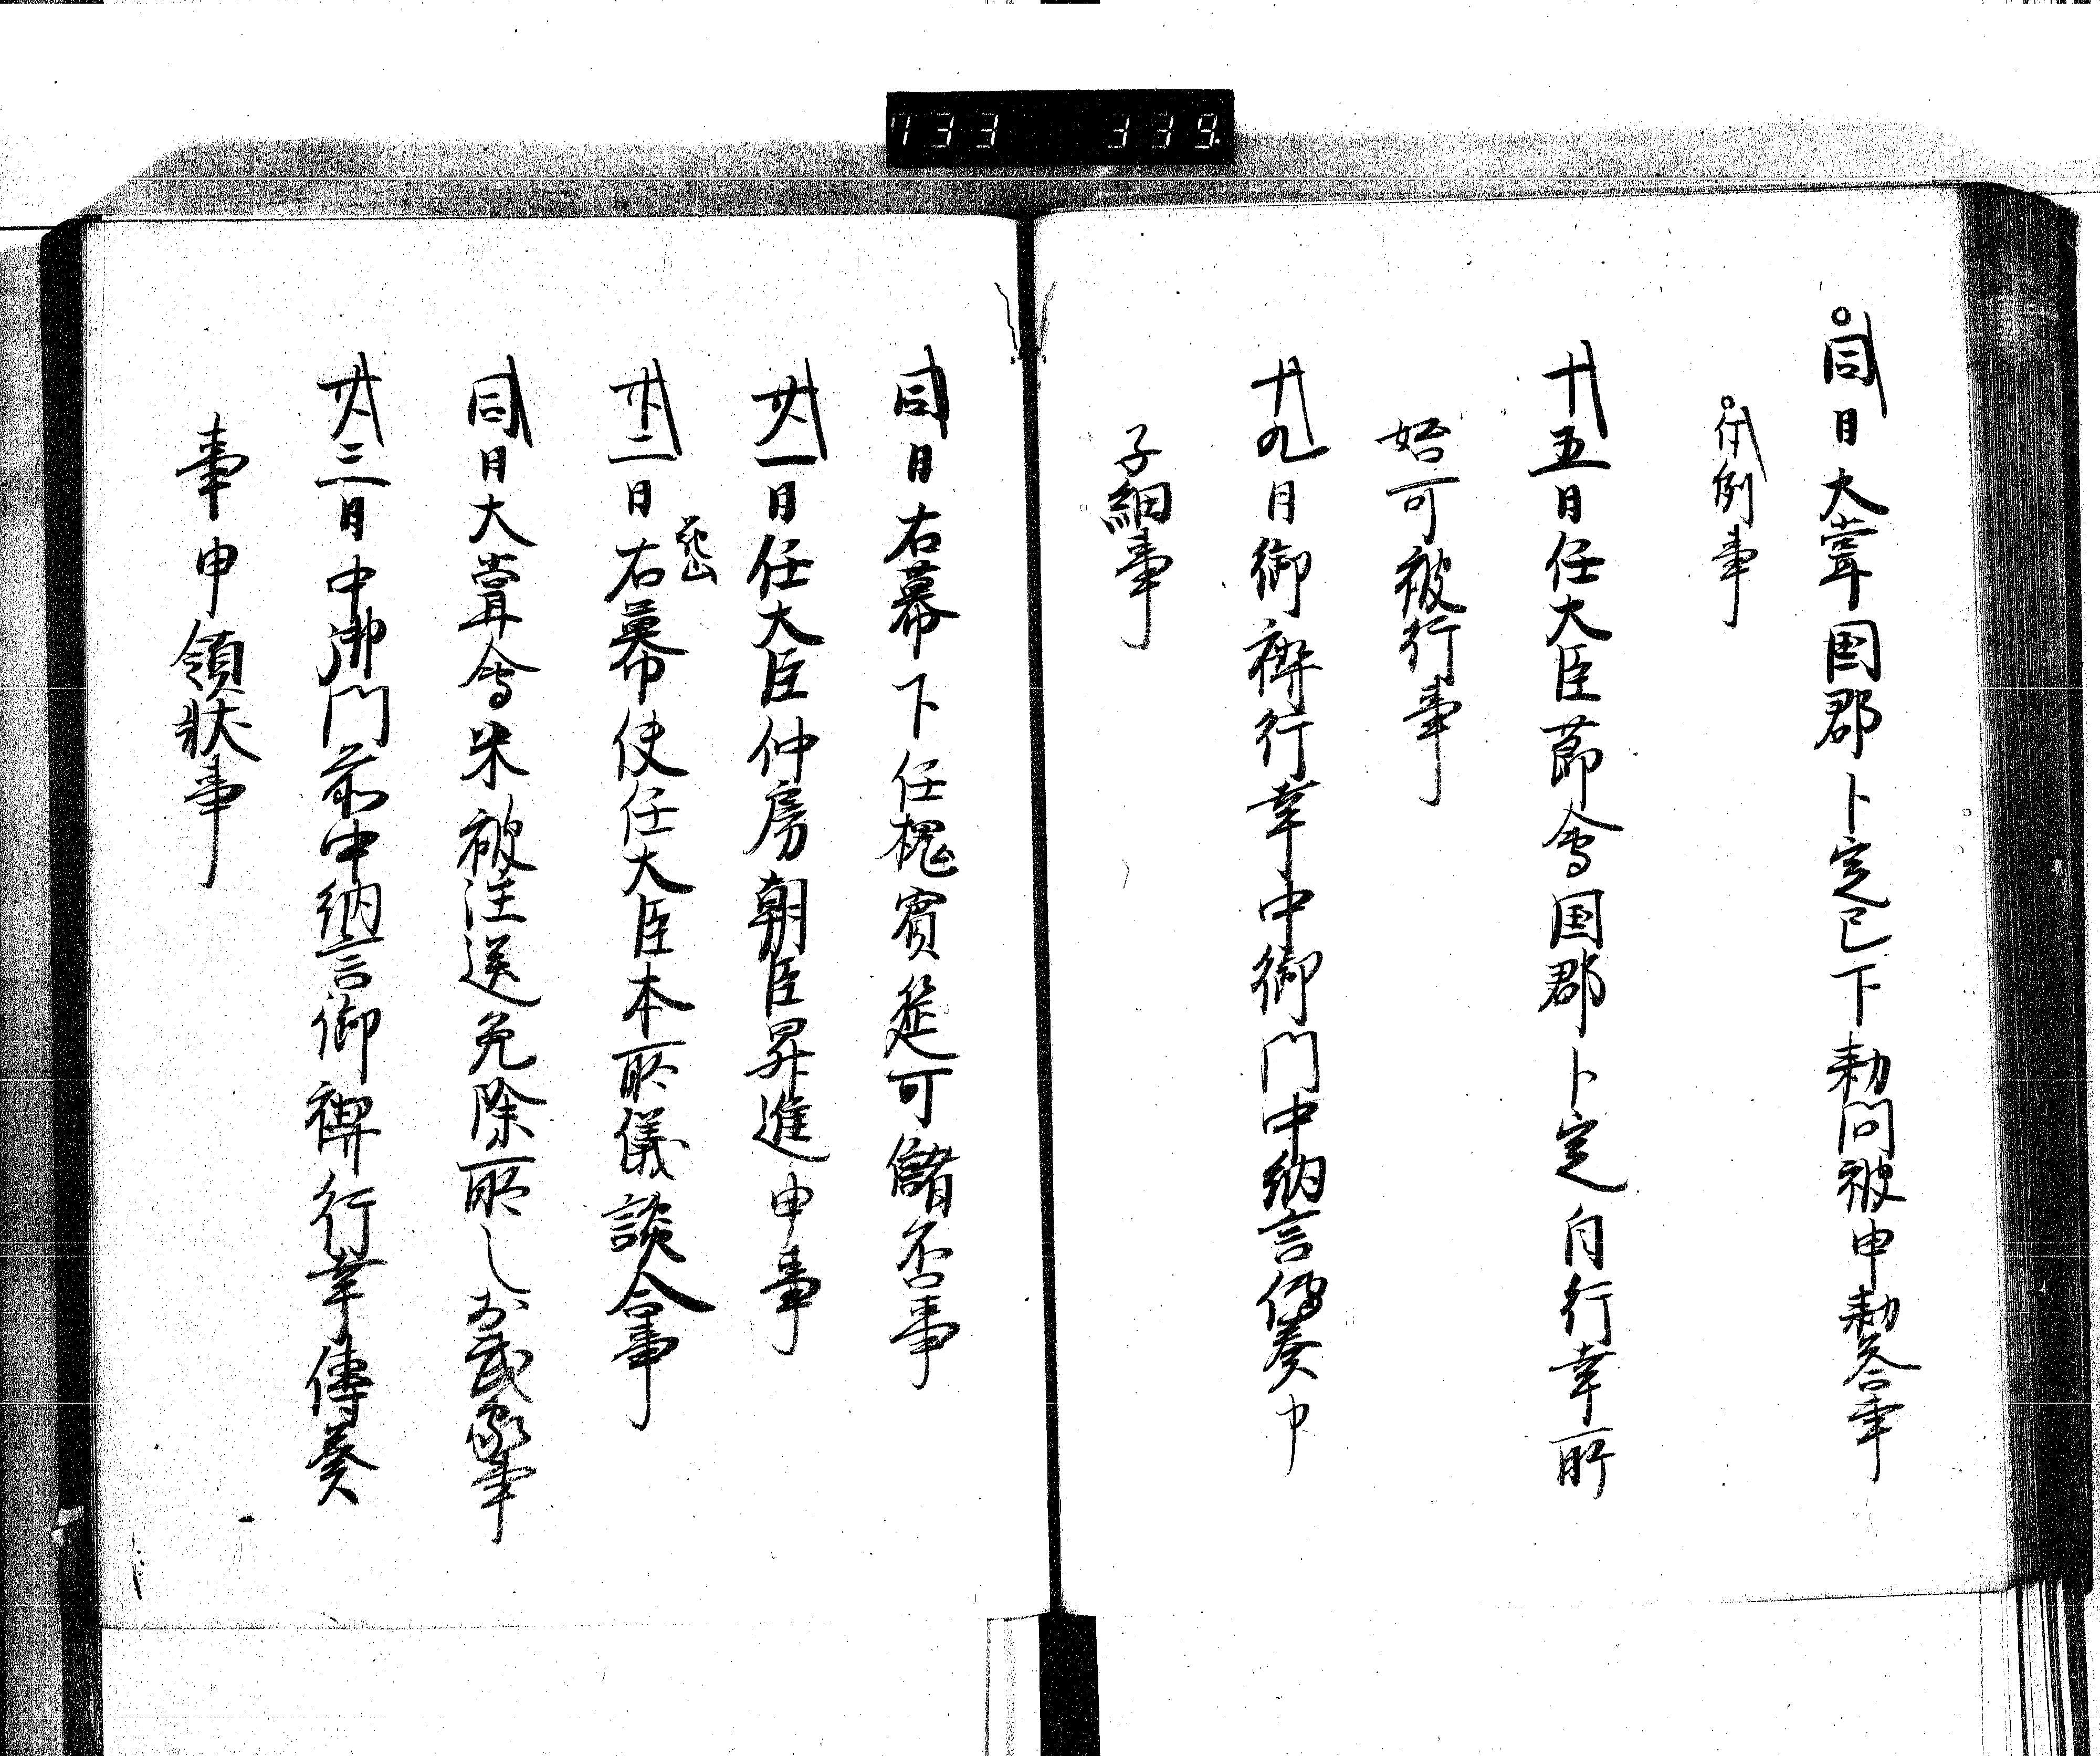 733 339
同日大嘗国郡卜定已下勅問被申勅答事
付例事
十五日任大臣節会国郡卜定自行幸所
始可被行事
十九日御禊行幸中御門中納言伝奏申
子細事
同日右幕下任槐賓筵可儲否事
廿一日任大臣仲房朝臣昇進申事
廿二日右幕使任大臣本所儀談合事
花山
同日大嘗会米被注送免除所し於武家事
廿三日中御門前中納言御禊行幸傳奏
事申領状事